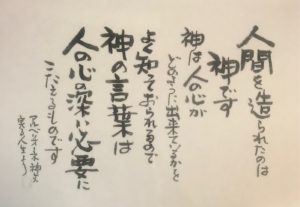 人間を造られたのは
神です
神は人の心が
どのように出来ているかを
よく知っておられるので
神の言葉は
人の心の深い必要に
こたえるものです
アルベリオーネ神父